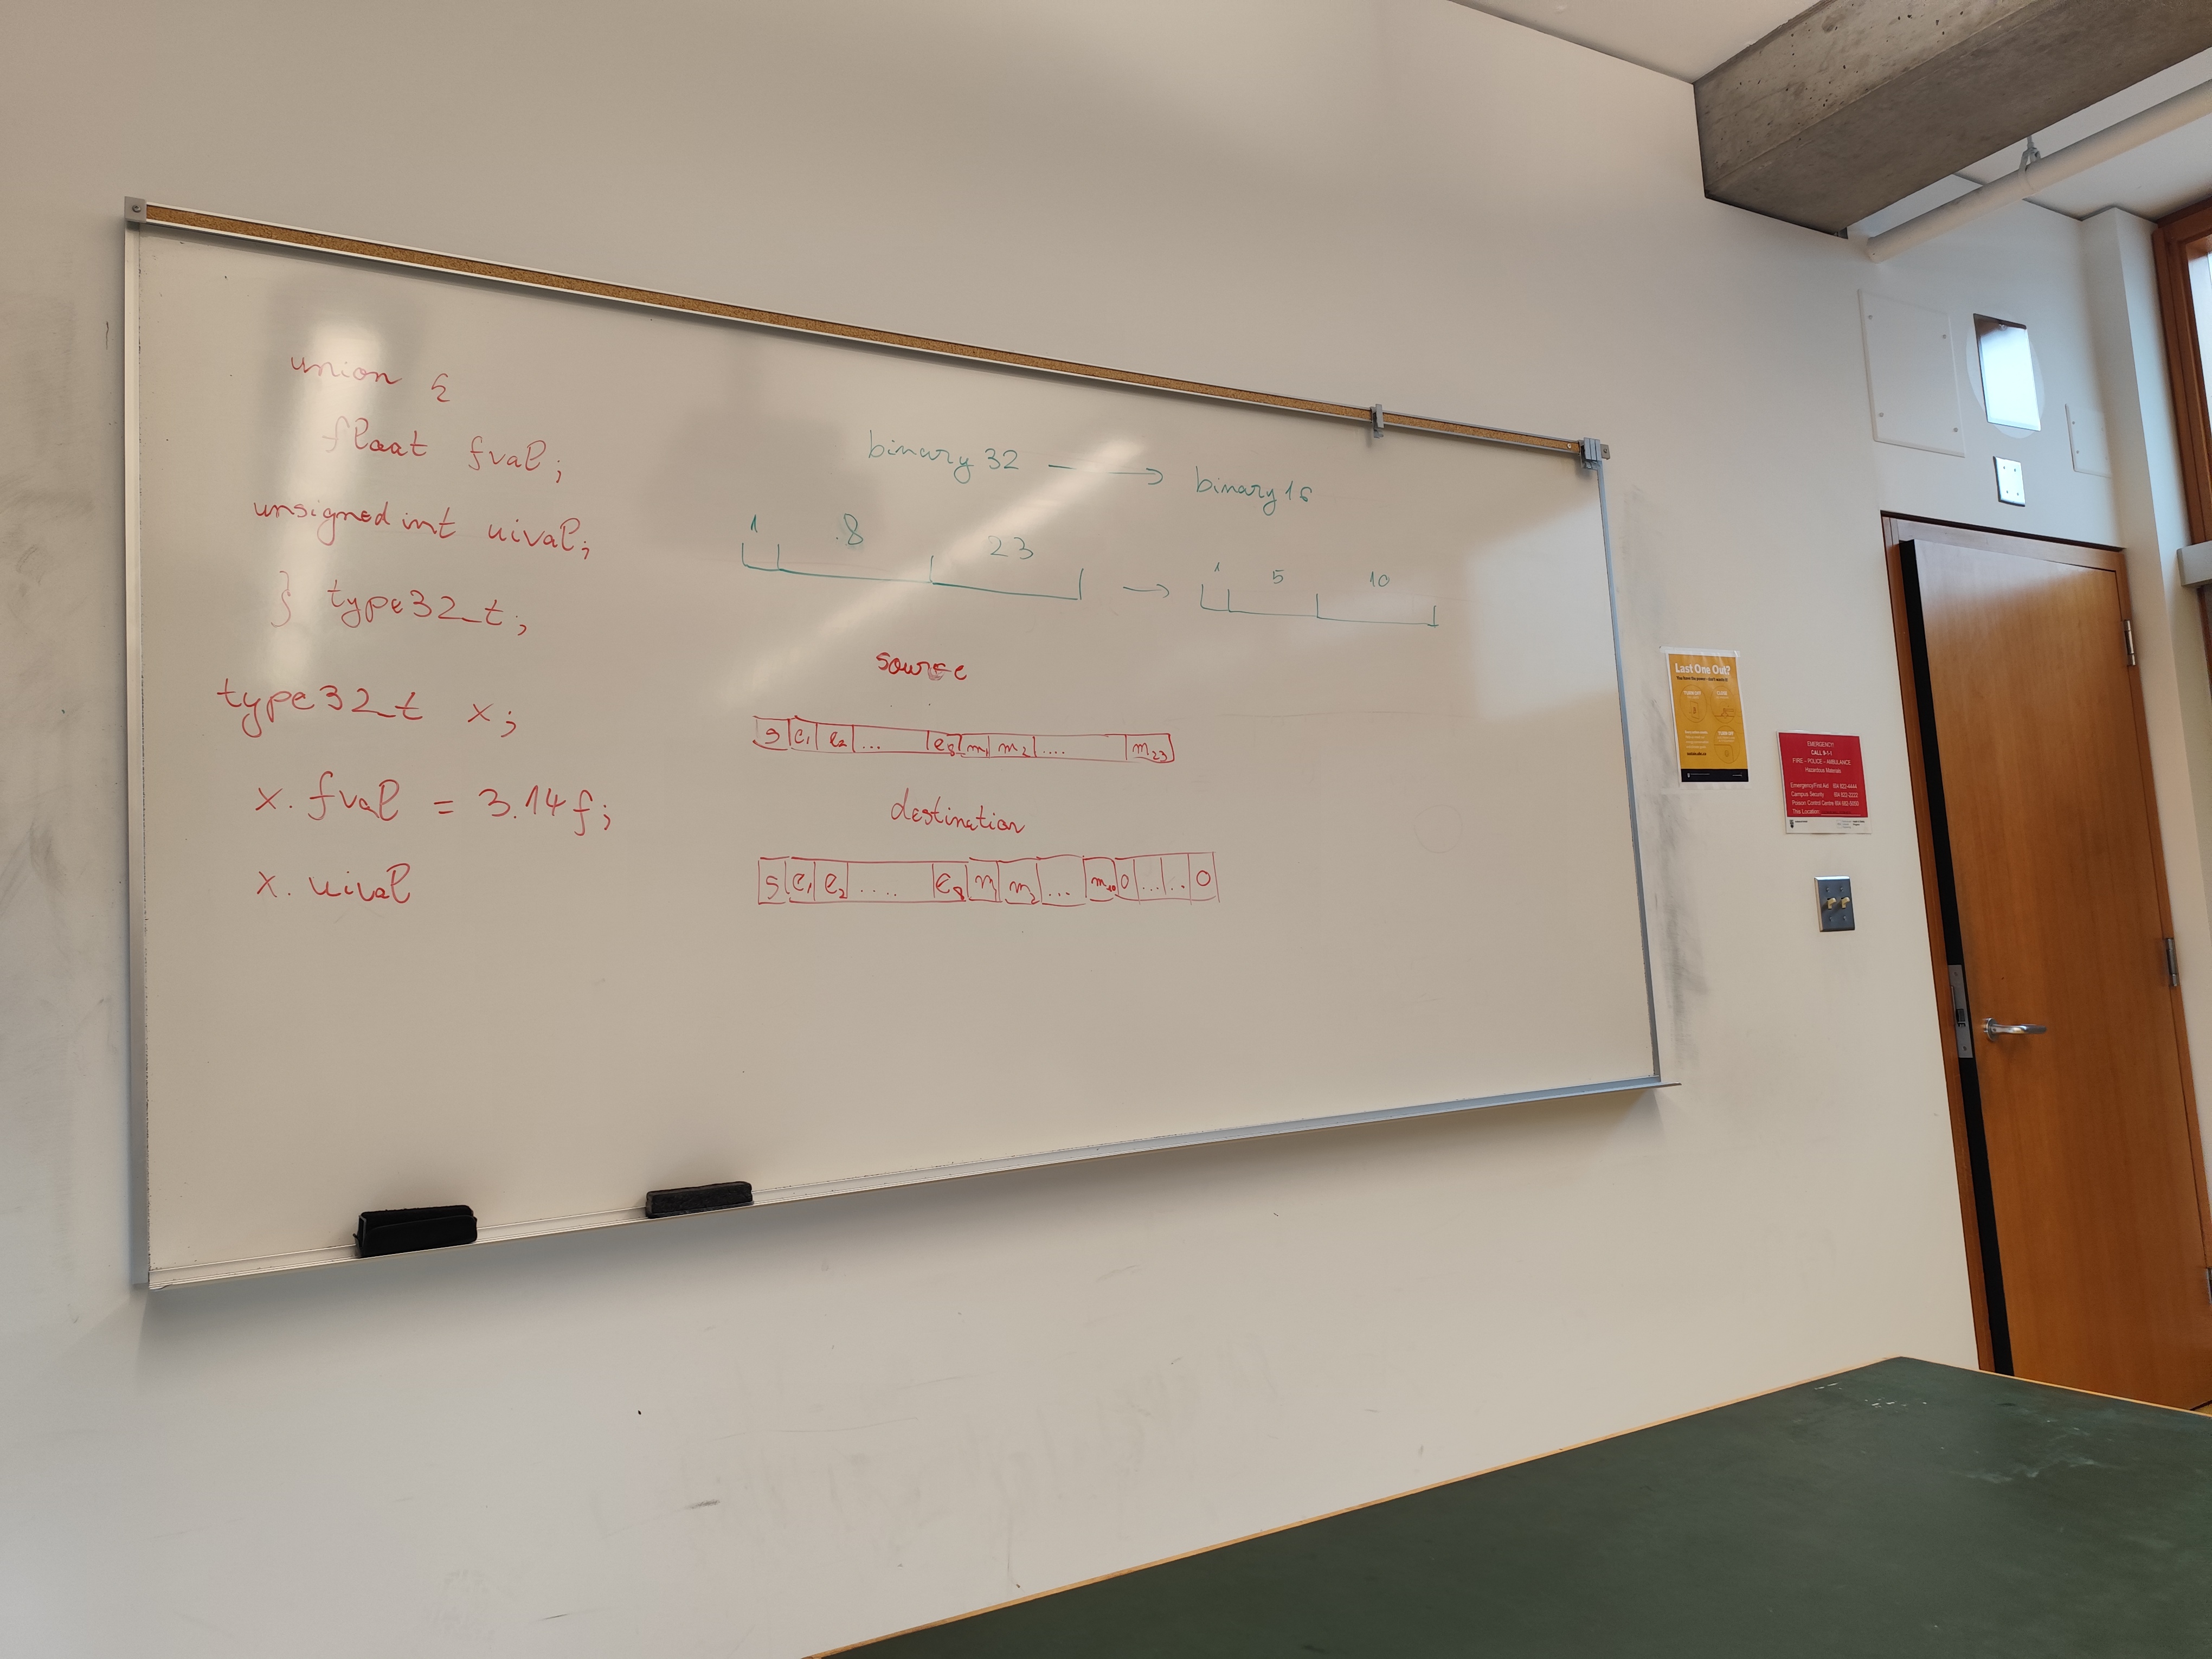 union {
float fval;
unsigned int uival;
} type32_t;
type32_t x;
x.fval = 3.14f;
x.uival
binary32 → binary16
1 8 23 → 1 5 10
source
s e1 e2 ... e8 m1 m2 .... m23
destination
s e1 e2 .... e8 m1 m2 ... m10 0 ... .. 0
Last One Out?
EMERGENCY!
CALL 9-1-1
FIRE - POLICE - AMBULANCE
Hazardous Materials
Emergency/First Aid
Campus Security
Poison Control Centre
This Location: